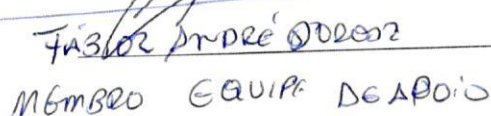 ANDRÉ
MEMBRO EQUIPE DE APOIO